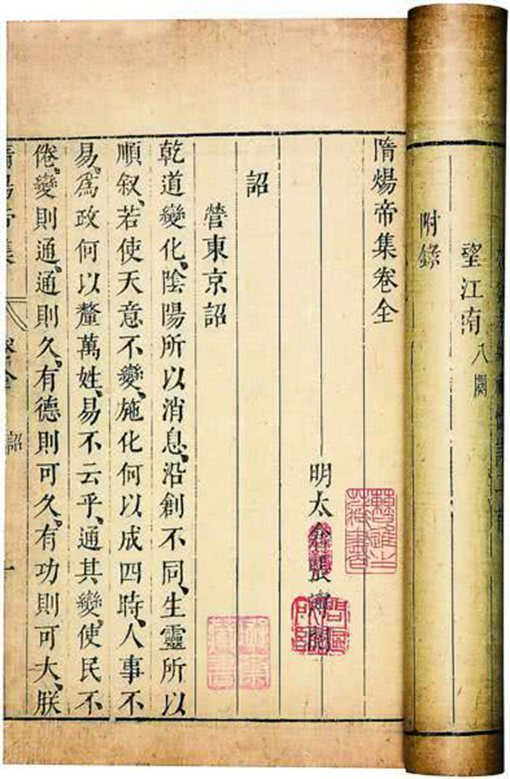 附錄
望江南八闋
隋煬帝集卷全
明太倉張溥閱
詔
營東京詔
乾道變化、陰陽所以消息、沿創不同、生靈所以
順叙、若使天意不變、施化何以成四時、人事不
易、爲政何以釐萬姓、易不云乎、通其變、使民不
倦、變則通、通則久、有德則可久、有功則可大、朕
隋煬帝集
卷全
詔
一